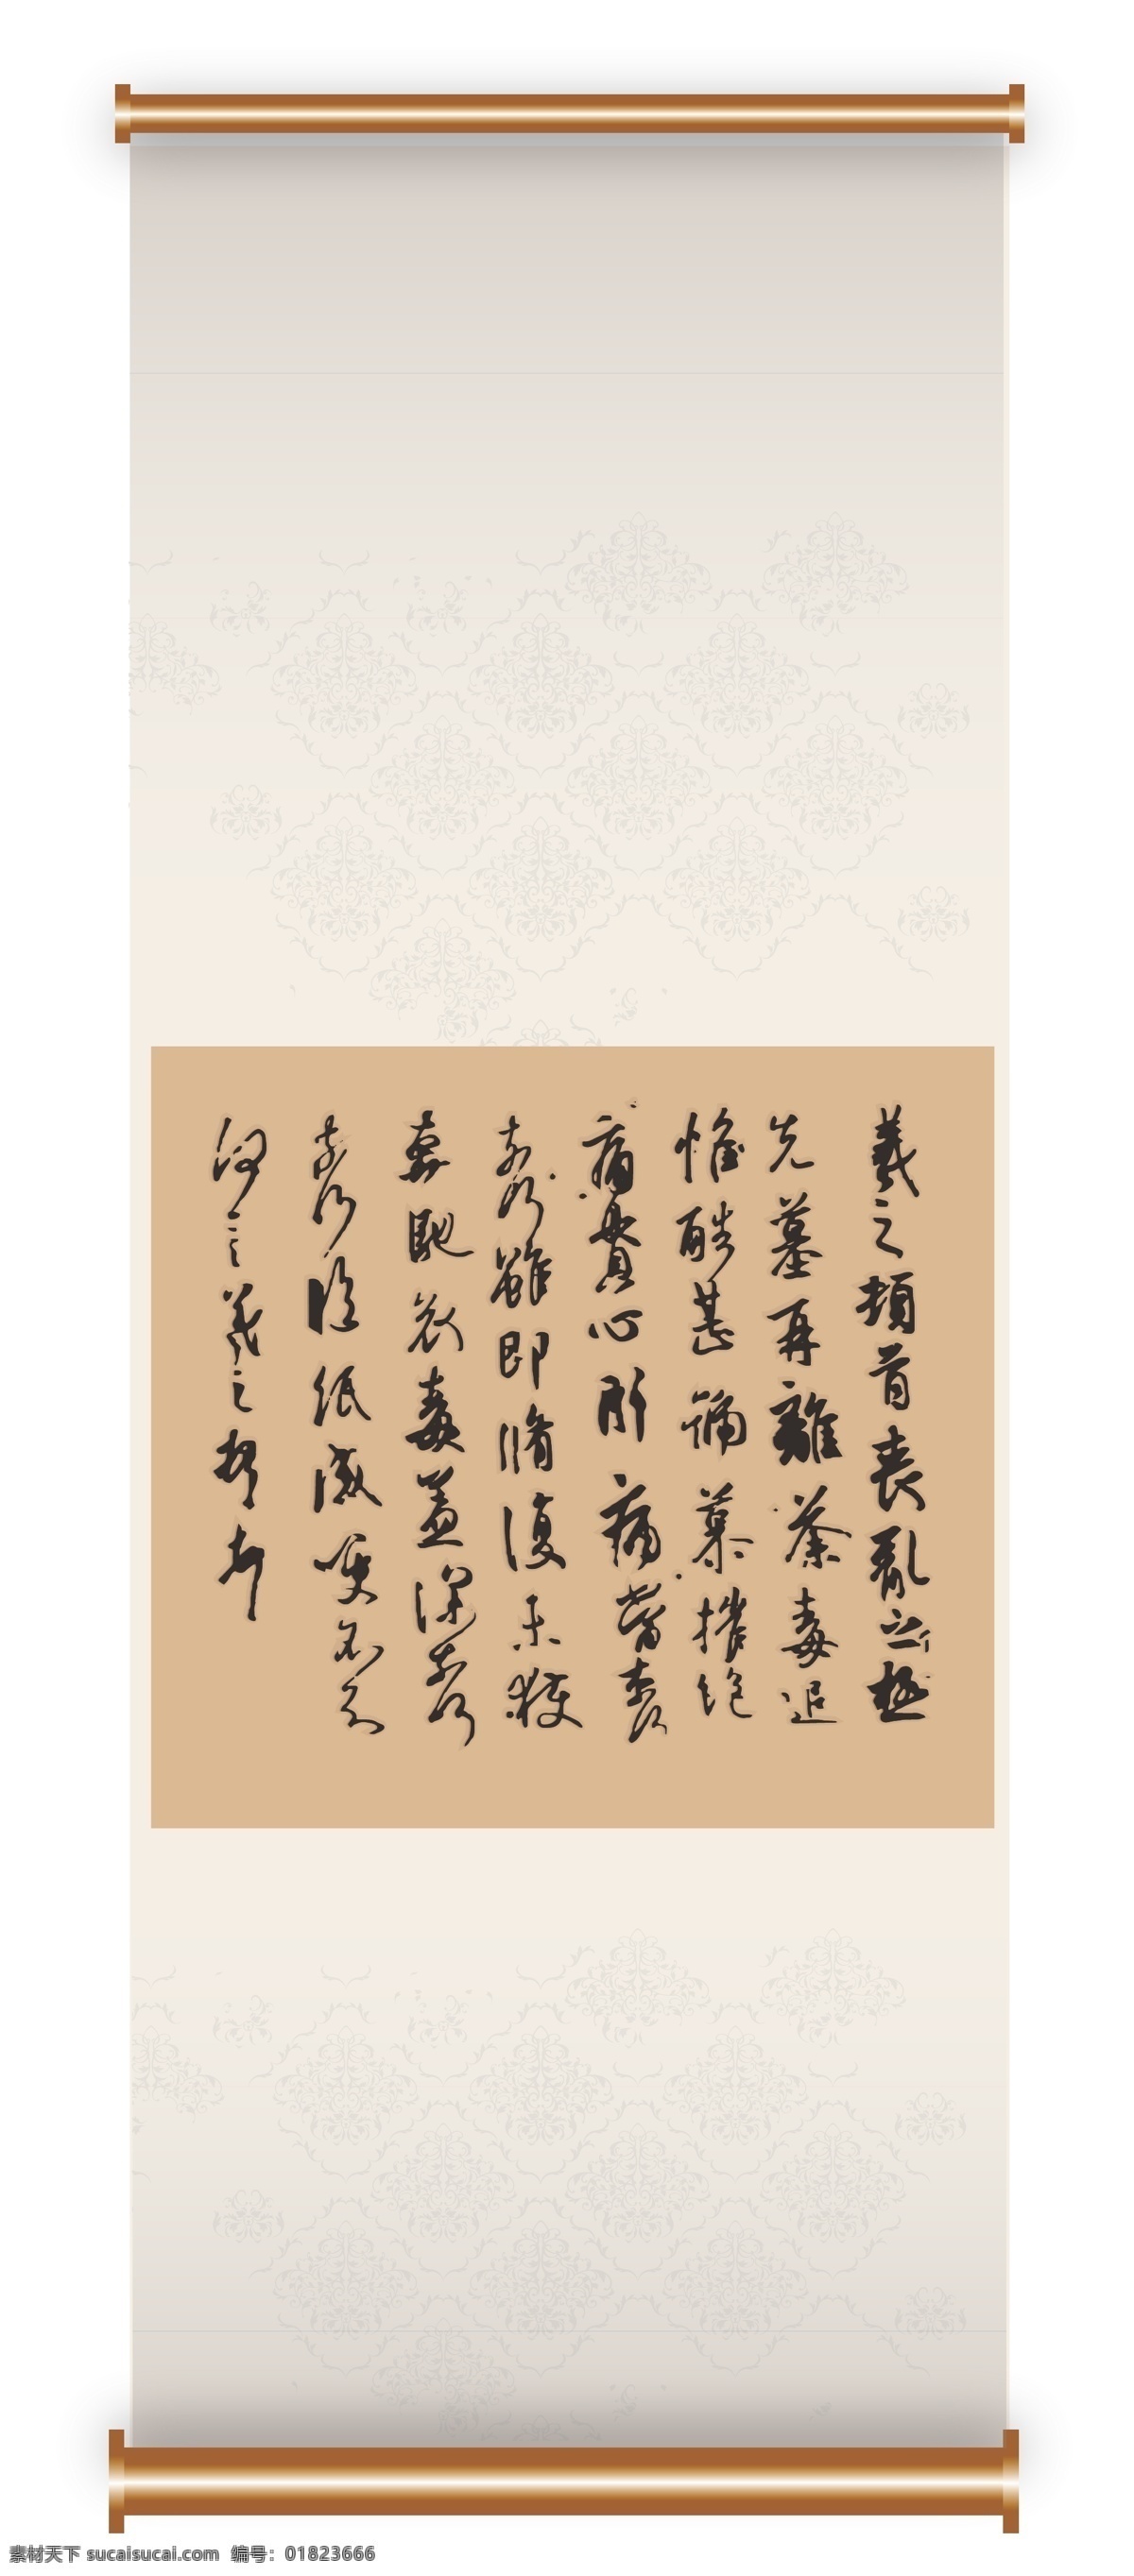 羲之頓首喪亂之極
先墓再離荼毒追
惟酷甚號慕摧絶
痛貫心肝痛當奈何
奈何雖即脩復未獲
奔馳哀毒益深奈何
奈何臨紙感哽不知
何言羲之頓首頓首
素材天下 sucaisucai.com 编号：01823666